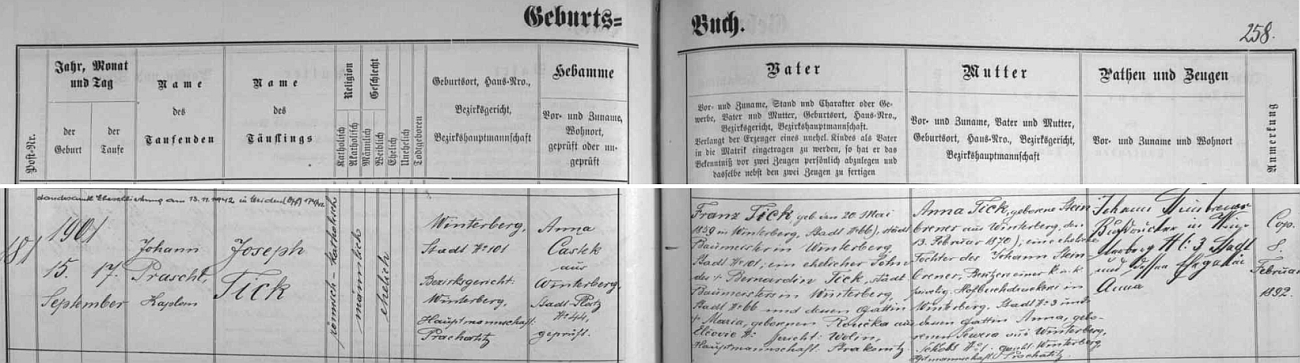 Geburts=
Buch.
258.
Post-Nr.
Jahr, Monat
und Tag
der
Geburt
der
Taufe
Name
des
Taufenden
Name
des
Täuflings
Religion
Katholisch
Akatholisch
Geschlecht
Männlich
Weiblich
Ehelich
Unehelich
Todtgeboren
Geburtsort, Haus-Nro.,
Bezirksgericht,
Bezirkshauptmannschaft
Hebamme
Vor- und Zuname,
Wohnort,
geprüft oder un-
geprüft
Vater
Vor- und Zuname, Stand und Charakter oder Ge-
werbe, Vater und Mutter, Geburtsort, Haus-Nro.,
Bezirksgericht, Bezirkshauptmannschaft.
Verlangt der Erzeuger eines unehel. Kindes als Vater
in die Matrik eingetragen zu werden, so hat er das
Bekenntniß vor zwei Zeugen persönlich abzulegen und
dasselbe nebst den zwei Zeugen zu fertigen
Mutter
Vor- und Zuname, Vater und Mutter,
Geburtsort, Haus-Nro., Bezirksgericht,
Bezirkshauptmannschaft
Pathen und Zeugen
Vor- und Zuname und Wohnort
Anmerkung
181
1901
15. 17.
September
Johann
Prascht,
Kaplan
Joseph
Tick
römisch-katholisch
männlich
ehelich
Winterberg,
Stadt Nr 101
Bezirksgericht:
Winterberg,
Hauptmannschaft:
Prachatitz
Anna
Castek
aus
Winterberg,
Stadt Platz
Nr 44,
geprüft.
Franz Tick, geb. den 20 Mai
1859 in Winterberg, Stadt Nr 66), Stadt
Baumeister in Winterberg
Stadt Nr 101, ein ehelicher Sohn
des † Bernardin Tick, Stadt
Baumeisters in Winterberg,
Stadt Nr 66 und dessen Gattin
† Maria, gebornen Rosicka aus
Gericht: Wolin,
Hauptmannschaft Strakonitz
Anna Tick, geborne Stein
brener, aus Winterberg, den
13. Februar 1870), eine eheliche
Tochter des Johann Stein
brener, Besitzer einer k. u. k.
Hofbuchdruckerei in
Winterberg, Stadt Nr 3 und
dessen Gattin Anna, gebo-
aus Winterberg,
Gericht: Winterberg
Hauptmannschaft: Prachatitz
Johann Steinbrener
Buchdrucker in Win-
terberg N: 3 Stadt
und dessen Ehegattin
Anna
Cop.
8.
Februar
1892.